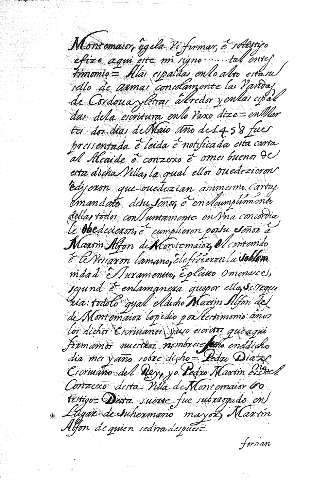 Montemaior, é gela vi firmar, é so testigo
é fize aqui este mi syno ...... tal en tes
timonio = A las espaldas en lo alto esta su
sello de armas con solamente las Vandas
de Cordova y letras alrededor y en las espal
das de la escritura en lo vaxo dize = en Mar
tes dos dias de Maio año de 1458 fue
pressentada é leida é notificada esta carta
al Alcaide é conzexo é omes buenos de
esta dicha Villa, la qual ellos ovedezieron
é dixeron que ovedezian assimesmo carta y
mandato de su Señor, é en el cumplimiento
della todos conjuntamente en una concordia
le obedezieron, é cumplieron por su Señor a
Martin Alfon de Montemaior, é
le vesaron la mano, é le fizieron la solem
nidad é Juramento, é pleito omenaxe,
segund é en la manera que por ella se reque
ria: todo lo qual el dicho Martin Alfon de
de Montemaior lo pidio por testimonio a nos
los dichos Escrivanos yuso escritos que aqui
firmamos nuestros nombres fecho en el dicho
dia mes y año sobre dicho = Pedro Diaz
Escrivano del Rey, yo Pedro Martin
Conzexo desta Villa de Montemaior so
testigo = Desta suerte fue subrogado en
Lugar de su hermano mayor, Martin
Alfon de quien se dira despues =